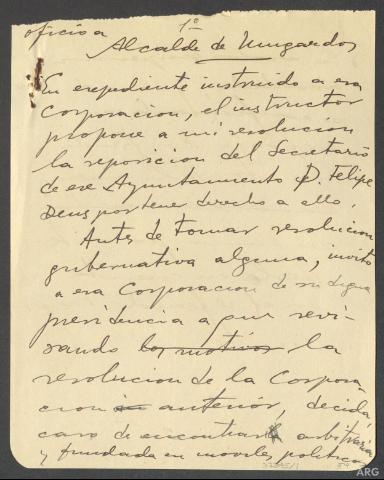 1º
oficio a
Alcalde de Mugardos
En expediente instruido a esa
Corporacion, el instructor
propone a mi resolucion
la reposicion del Secretario
de ese Ayuntamiento D. Felipe
Deus por tener derecho a ello.
Antes de tomar resolucion
gubernativa alguna, invito
a esa Corporacion de su digna
presidencia a que revi-
sando los motivos la
resolucion de la Corpora-
cion anterior, decida,
caso de encontrarla arbitraria
y fundada en moviles politicos
ARG